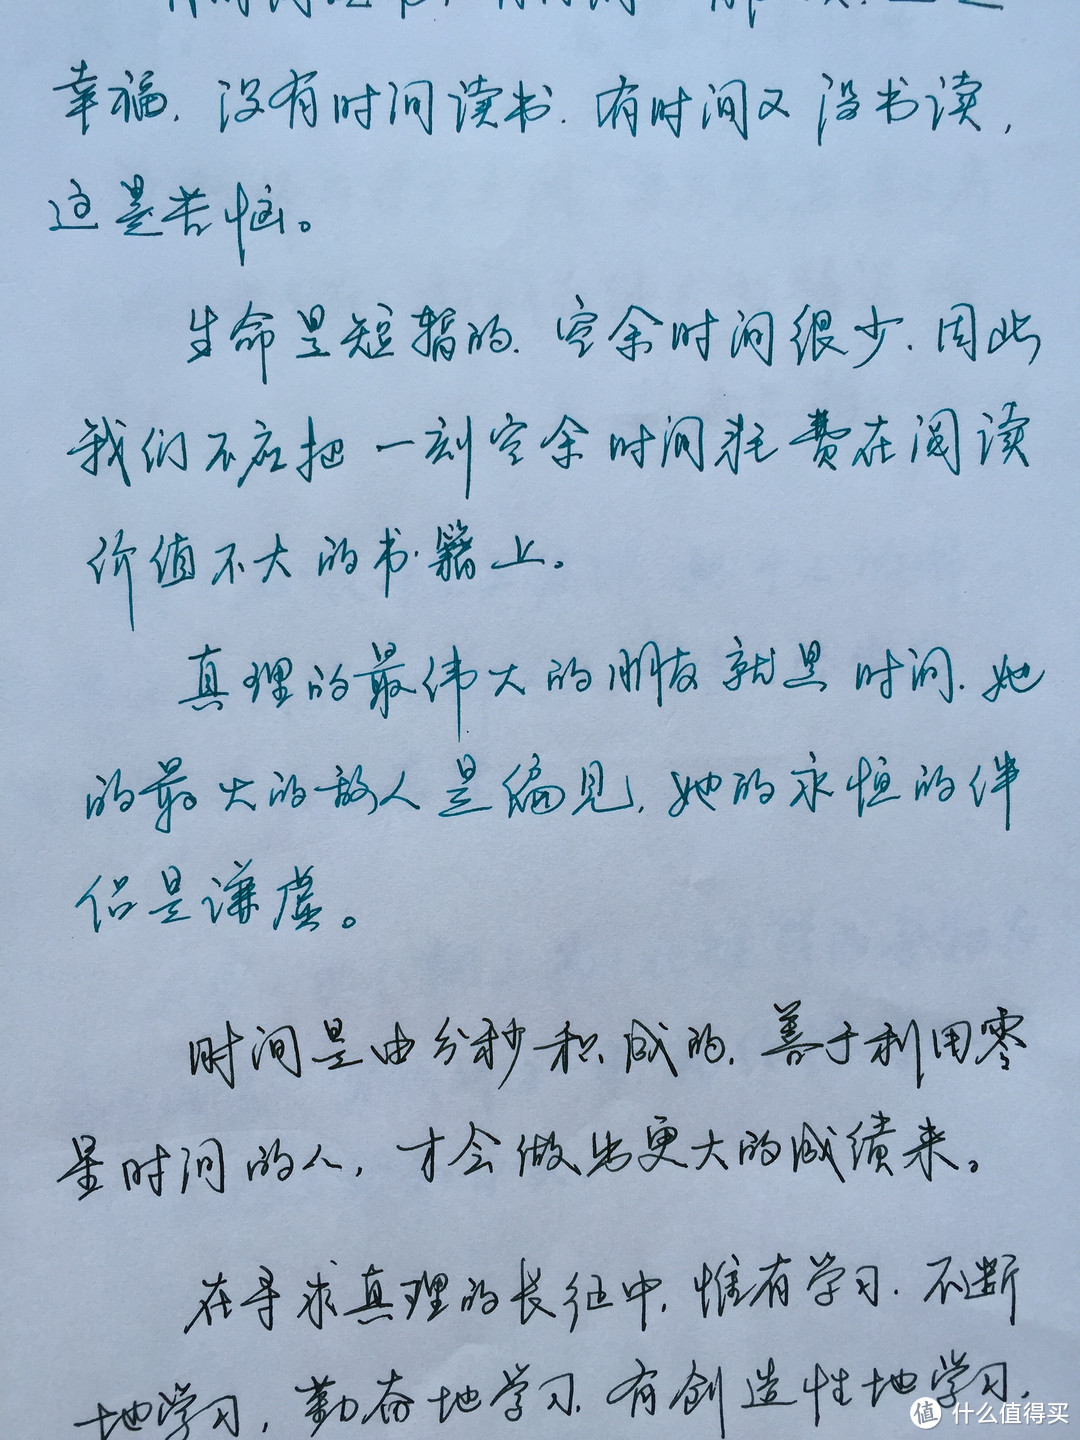 幸福,没有时间读书,有时间又没书读,
这是苦恼。
生命是短暂的,空余时间很少,因此
我们不应把一刻空余时间耗费在阅读
价值不大的书籍上。
真理的最伟大的朋友就是时间,她
的最大的敌人是偏见,她的永恒的伴
侣是谦虚。
时间是由分秒积成的,善于利用零
星时间的人,才会做出更大的成绩来。
在寻求真理的长征中,惟有学习,不断
地学习,勤奋地学习,有创造性地学习,
值 什么值得买